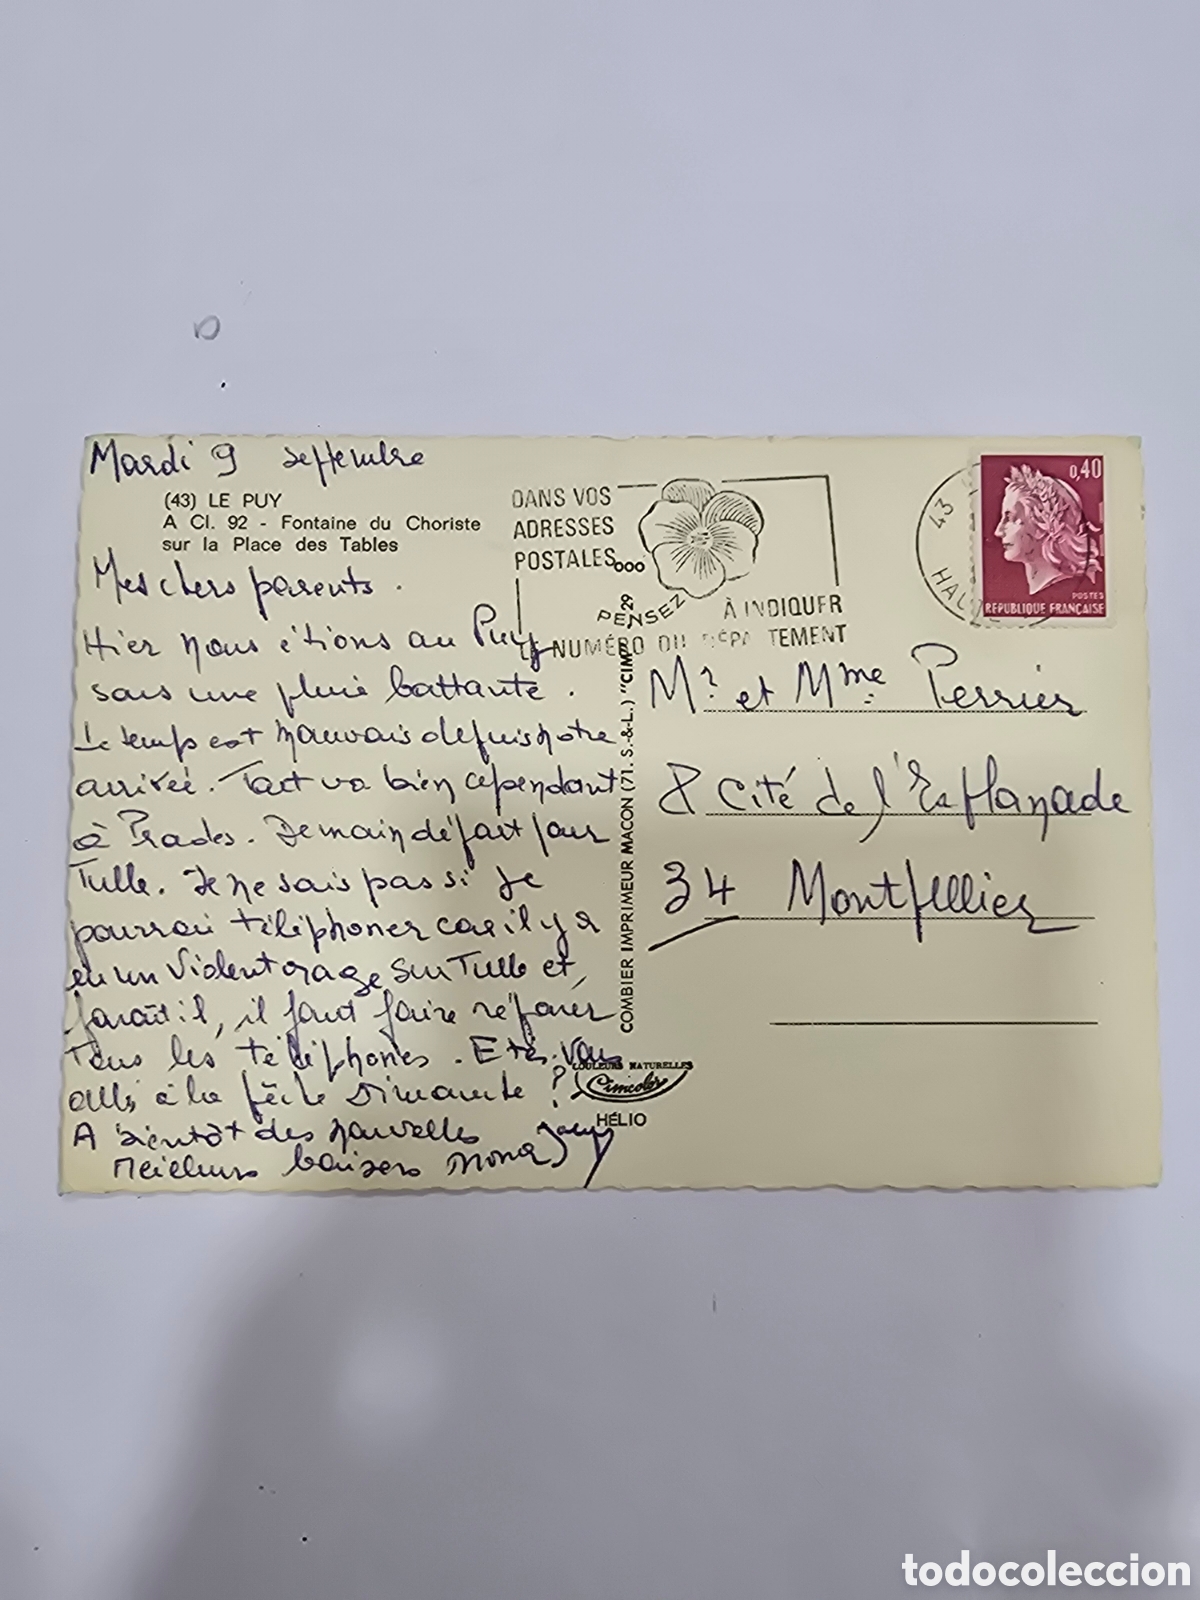 Mardi 9 septembre
(43) LE PUY
A Cl. 92 - Fontaine du Choriste
sur la Place des Tables
Mes chers parents.
Hier nous étions au Puy
sous une pluie battante.
Le temps est mauvais depuis notre
arrivée. Tout va bien cependant
à Prades. Demain départ pour
Tulle. Je ne sais pas si je
pourrai téléphoner car il y a
eu un violent orage sur Tulle et,
paraît il, il faut faire réparer
tous les téléphones. Etes-vous
allés à la pêche Dimanche ?
A bientôt des nouvelles
Meilleurs baisers
DANS VOS
ADRESSES
POSTALES...
PENSEZ
À INDIQUER
LE NUMÉRO DU DÉPARTEMENT
43
HAUTE
0,40
POSTES
REPUBLIQUE FRANÇAISE
Mr. et Mme. Perrier
8 Cité de l'Esplanade
34 Montpellier
COMBIER IMPRIMEUR MACON (71. S.-&-L.) "CIM"
29
COULEURS NATURELLES
Cimcolor
HÉLIO
todocoleccion